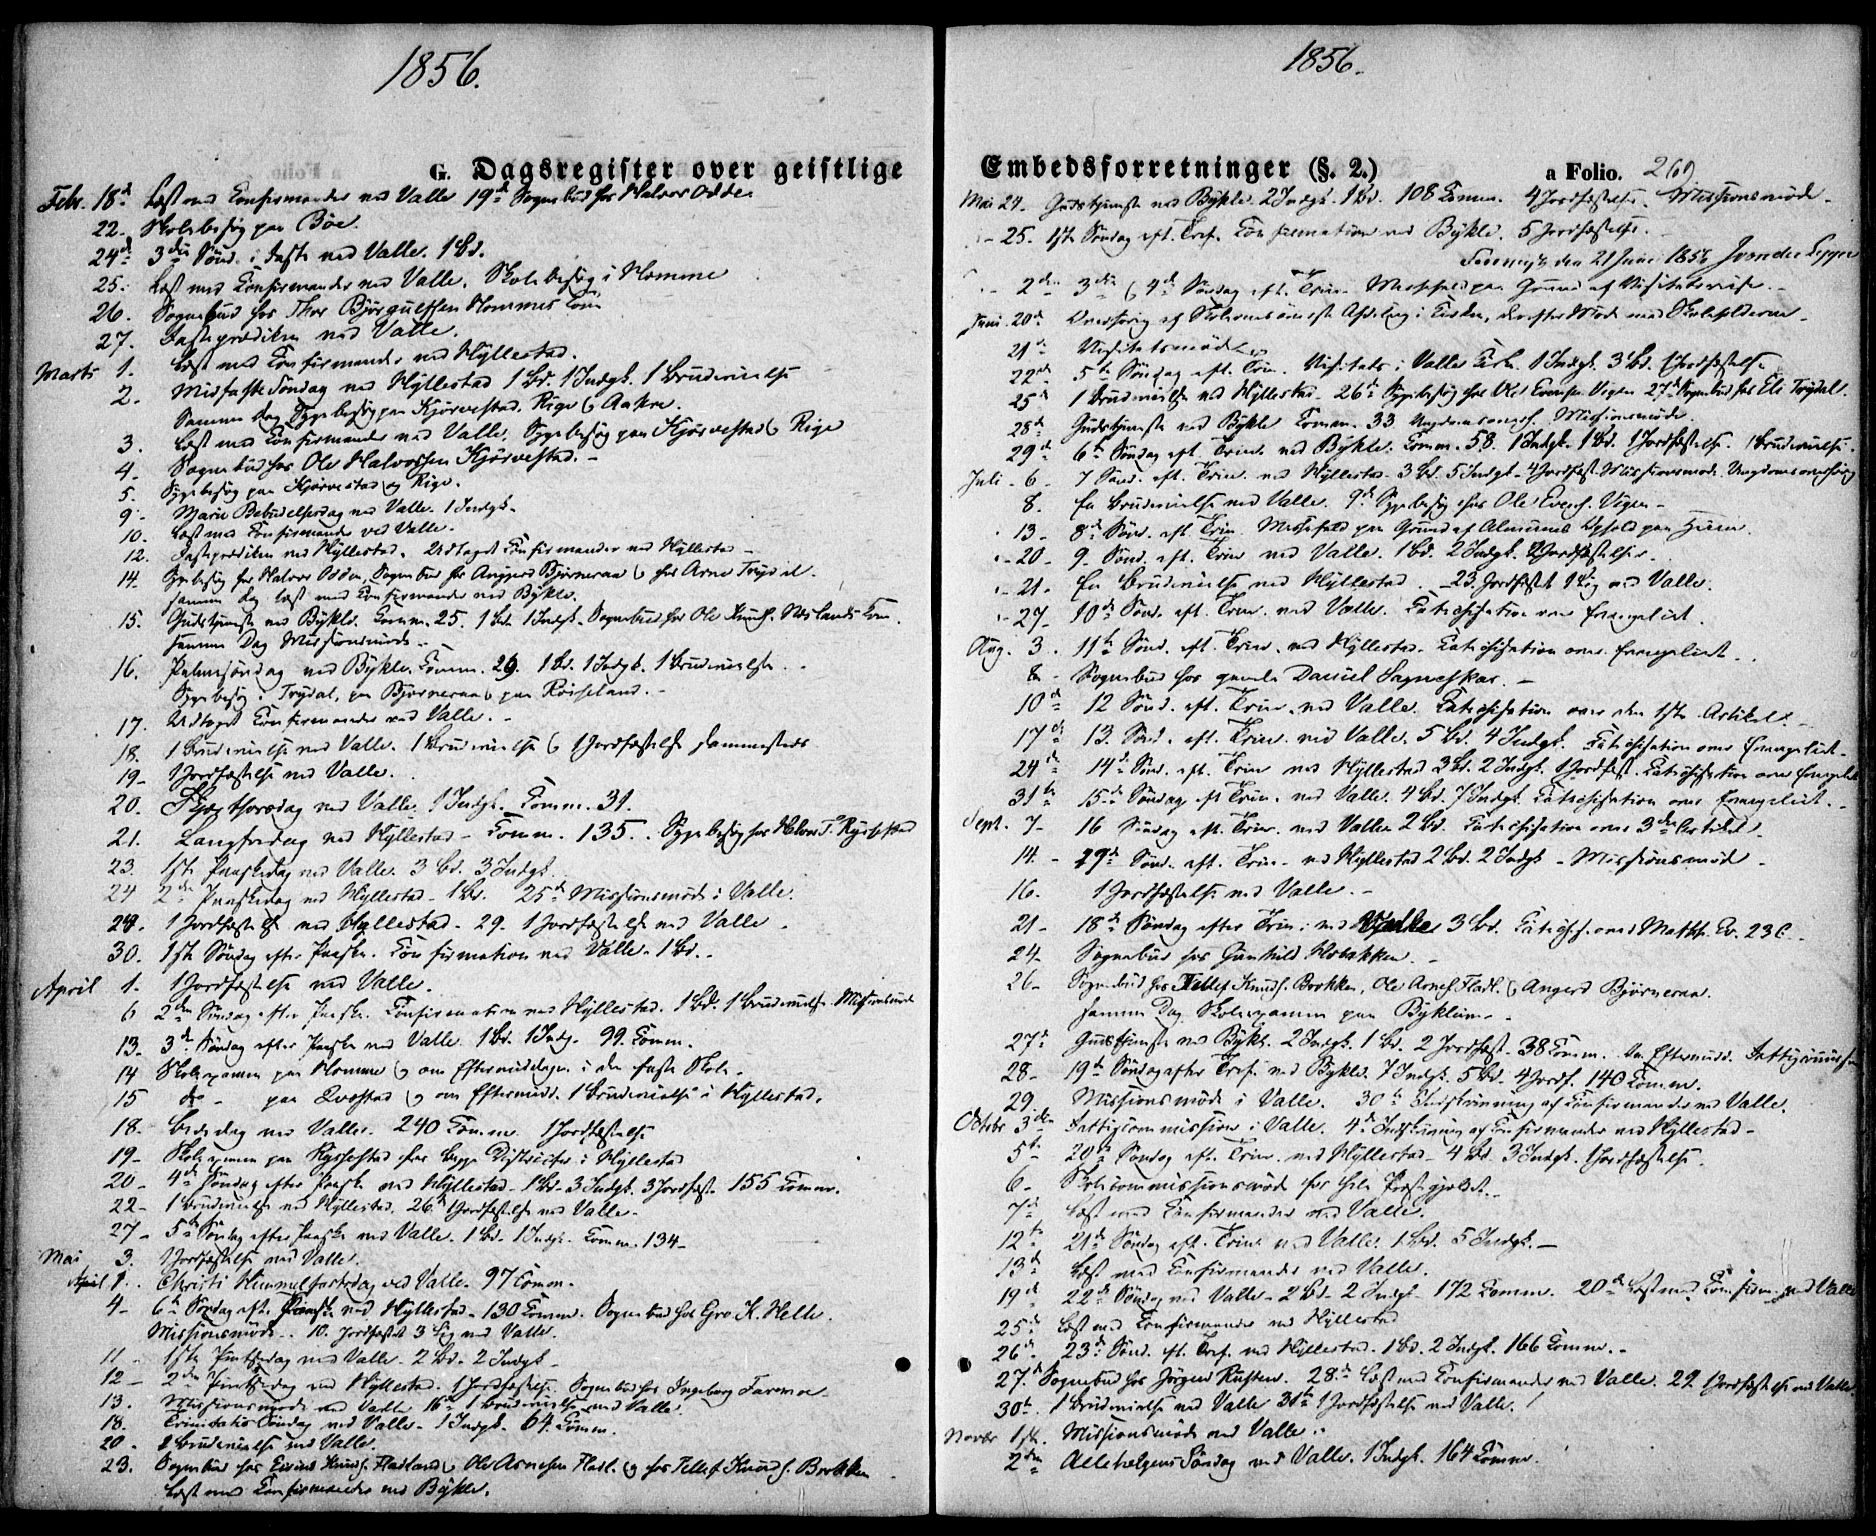 1856.
G. Dagsregister over geistlige
Febr. 18d Læst med Confirmander ved Valle 19d Sognebud hos Halvor Odden
22. Skolebesøg paa Bøe.
24de 3die Sönd. i Faste ved Valle. 1 Bd.
25. Læst med Confirmander ved Valle. Skolebesøg i Homme
26. Sognebud hos Thor Björgulfsen Hommes
27. Fasteprædiken ved Valle.
Marts 1. Læst med Confirmander ved Hyllestad.
2. Midfaste Söndag ved Hyllestad 1 Bd. 1 Indgk. 1 Brudevielse
Samme dag Sygebesög paa Kjörvestad, Rige og Aakre.
3. Læst med Confirmander ved Valle. Sygebesög paa Kjörvestad og Rige
4. Sognebud hos Ole Halvorsen Kjörvestad. -
5. Sygebesög paa Kjörvestad og Rige.
9. Mariæ Bebudelsesdag ved Valle. 1 Indgk.
10. Læst med Confirmander ved Valle.
12. Fasteprædiken ved Hyllestad. Udtaget Confirmander ved Hyllestad -
14. Sygebesög hos Halvor Odden, Sognebud hos Anggerd Björneraa og hos Arne Trydal.
samme dag læst med Confirmander ved Bykle.
15. Gudstjeneste ved Bykle. Comm. 25. 1 Bd. 1 Indgk. Sognebud hos Ole Knuds. Næslands
samme Dag Missionsmöde -
16. Palmesöndag ved Bykle. Comm. 29. 1 Bd. 1 Indgk. 1 Brudevielse.
Sygebesög i Trydal, paa Bjørneraa og paa Røiseland. -
17. Udtaget Confirmander ved Valle. -
18. 1 Brudevielse ved Valle. 1 Brudevielse og 1 Jordfæstelse sammesteds
19- 1 Jordfæstelse ved Valle.
20. Skjærthorsdag ved Valle. 1 Indgk. Comm. 31.
21. Langfredag ved Hyllestad - Comm. 135. Sygebesög hos Halvor T. Rysstad
23. 1ste Paaskedag ved Valle. 3 Bd. 3 Indgk.
24 2den Paaskedag ved Hyllestad - 1 Bd. 25d Missionsmöde i Valle.
1 Jordfæstelse ved Hyllestad - 29. 1 Jordfæstelse ved Valle -
30. 1ste Söndag efter Paaske. Confirmation ved Valle. 1 Bd. -
April 1. 1 Jordfæstelse ved Valle.
6 2den Söndag efter Paaske. Confirmation ved Hyllestad. 1 Bd. 1 Brudevielse. Missionsmöde
13. 3de Söndag efter Paaske ved Valle. 1 Bd. 1 Indg. 99. Comm.
14 Skolexamen paa Homme og om Eftermiddagen i den faste Skole.
15 do - paa Qvestad og om Eftermidd. 1 Brudevielse i Hyllestad.
18. Bededag ved Valle. 240 Comm. 1 Jordfæstelse
19- Skolexamen paa Rysstad for begge Districter i Hyllestad
20- 4de Söndag efter Paaske ved Hyllestad - 1 Bd. 3 Indgk. 3 Jordfæst. 155 Comm.
22- 1 Brudevielse ved Hyllestad. 26d 1 Jordfæstelse ved Valle.
27- 5te Söndag efter Paaske ved Valle. 1 Bd. 1 Indgk. Comm. 134-
Mai 3. 1 Jordfæstelse ved Valle.
April 1. Christi Himmelfartsdag ved Valle. 97 Comm.
4- 6te Söndag eft. Paaske ved Hyllestad - 130 Comm. Sognebud hos Gro K. Helle.
Missionsmöde. - 10. Jordfæstet 3 Lig ved Valle.
11 - 1ste Pintsedag ved Valle. 2 Bd. 2 Indgk.
12 - 2den Pintsedag ved Hyllestad. 1 Jordfæstelse. Sognebud hos Ingeborg
13. Missionsmöde ved Valle 16d 1 Brudevielse ved Valle.
18. Trinitatis Söndag ved Valle - 1 Indgk. 64. Comm.
20 - 2 Brudevielse ved Valle.
23. Sognebud hos Eivind Knuds. Fladland, Ole Arnesen Fladl. og hos Tellef Knuds. Brokken
Læst med Confirmander ved Bykle.
1856.
Embedsforretninger (§. 2.)
a Folio. 260
Mai 24. Gudstjeneste ved Bykle. 2 Indgk. 1 Bd. 108 Comm. 4 Jordfæstelser. Missionsmöde -
- 25. 1ste Söndag eft. Tref. Confirmation ved Bykle. 5 Jordfæstelser.
den 21 Juni 1856
3die og 4de Söndag eft. Trin. Messefald paa Grund af Visitatsreise. -
Juni 20d Overhøring af Skolernes øverste Afdeling i Kirken, derefter Möde med Skoleholderne.
21de Visitatsmöde
22de 5te Söndag eft. Trin. Visitats i Valle Kirke. 1 Indgk. 3 Bd. 1 Jordfæstelse
25d 1 Brudevielse ved Hyllestad - 26d Sygebesög hos Ole Evensen Vigen 27d Sognebud hos Eli Trydal.
28d Gudstjeneste ved Bykle Comm. 33 Ungdomsoverh. Missionsmöde
29d 6te Söndag eft. Trin. ved Bykle. Comm. 58. 1 Indgk. 1 Bd. 1 Jordfæstelse. 1 Brudevielse.
Juli - 6- 7 Sönd. eft. Trin. ved Hyllestad - 3 Bd. 5 Indgk. 4 Jordfæst. Missionsmöde. Ungdomsoverhöring
8. En Brudevielse ved Valle. 9d Sygebesög hos Ole Evens. Vigen -
13- 8de Sönd. eft. Trin. Messefald paa Grund af Almuens Ophold paa Heien.
- 20- 9. Sönd. eft. Trin. ved Valle. 1 Bd. 2 Indgk. 2 Jordfæstelser -
- 21. En Brudevielse ved Hyllestad. - 23. Jordfæstet 1 Lig ved Valle.
- 27- 10de Sönd. eft. Trin. ved Valle. Catechisation over Evangeliet.
Aug. 3. 11te Sönd. eft. Trin. ved Hyllestad. Catechisation over Evangeliet.
8- Sognebud hos gamle Daniel Sagneskar. -
10d 12 Sönd. eft. Trin. ved Valle. Catechisation over den 1ste Artikel. -
17de 13. Sönd. eft. Trin. ved Valle. 5 Bd. 4 Indgk. Catechisation over Evangeliet -
24de 14de Sönd. eft. Trin ved Hyllestad 3 Bd. 2 Indgk. 1 Jordfæst. Catechisation over Evangeliet
31te 15de Söndag eft Trin. ved Valle. 4 Bd. 7 Indgk. Catechisation over Evangeliet. -
Sept. 7- 16 Söndag eft. Trin. ved Valle. 2 Bd. Catechisation over 3die Artikel -
14. - Sönd. eft. Trin. ved Hyllestad 2 Bd. 2 Indgk. - Missionsmöde -
16. 1 Jordfæstelse ved Valle. -
21- 18de Söndag efter Trin. ved Valle 3 Bd. Catechis. over Matth. Ev. 23 C. -
24- Sognebud hos Gunhild Hobakken. -
26- Sognebud hos Tellef Knuds. Brokken, Ole Arnes. Fladl. og Angerd Björneraa.
samme Dag Skolexamen paa Byklum. -
27de Gudstjeneste ved Bykle. 2 Indgk. 1 Bd. 2 Jordfæst. 38 Comm. Om Eftermidd. Fattigcommission
28- 19de Söndag efter Tref. ved Bykle. 7 Indgk. 5 Bd. 4 Jordf. 140 Comm.
29. Missionsmöde i Valle. 30te Indskrivning af Confirmander ved Valle.
Octobr 3die Fattigcommission i Valle. 4de Indskrivning af Confirmander ved Hyllestad -
5te 20de Söndag eft. Trin. ved Hyllestad - 4 Bd. 3 Indgk. 1 Jordfæstelse.
6- Skolecommissionsmöde for hele Præstegjeldet. -
7de Læst med Confirmander ved Valle.
12te 21de Söndag eft. Trin. ved Valle. 1 Bd. 5 Indgk. -
13de Læst med Confirmander ved Valle.
19d 22de Söndag ved Valle - 2 Bd. 2 Indgk. 172 Comm. 20d Læst med Confirm. ved Valle
25de Læst med Confirmander ved Hyllestad
26de 23de Sönd. eft. Tref. ved Hyllestad. 1 Bd. 2 Indgk. 166 Comm. -
27d Sognebud hos Jörgen Rusten. 28de Læst med Confirmander ved Valle. 29 1 Jordfæstelse ved Valle
30te 1 Brudevielse ved Valle 31te 1 Jordfæstelse ved Valle.
Novbr 1ste Missionsmöde ved Valle.
2den Allehelgens Söndag ved Valle. 1 Indgk. 164 Comm.